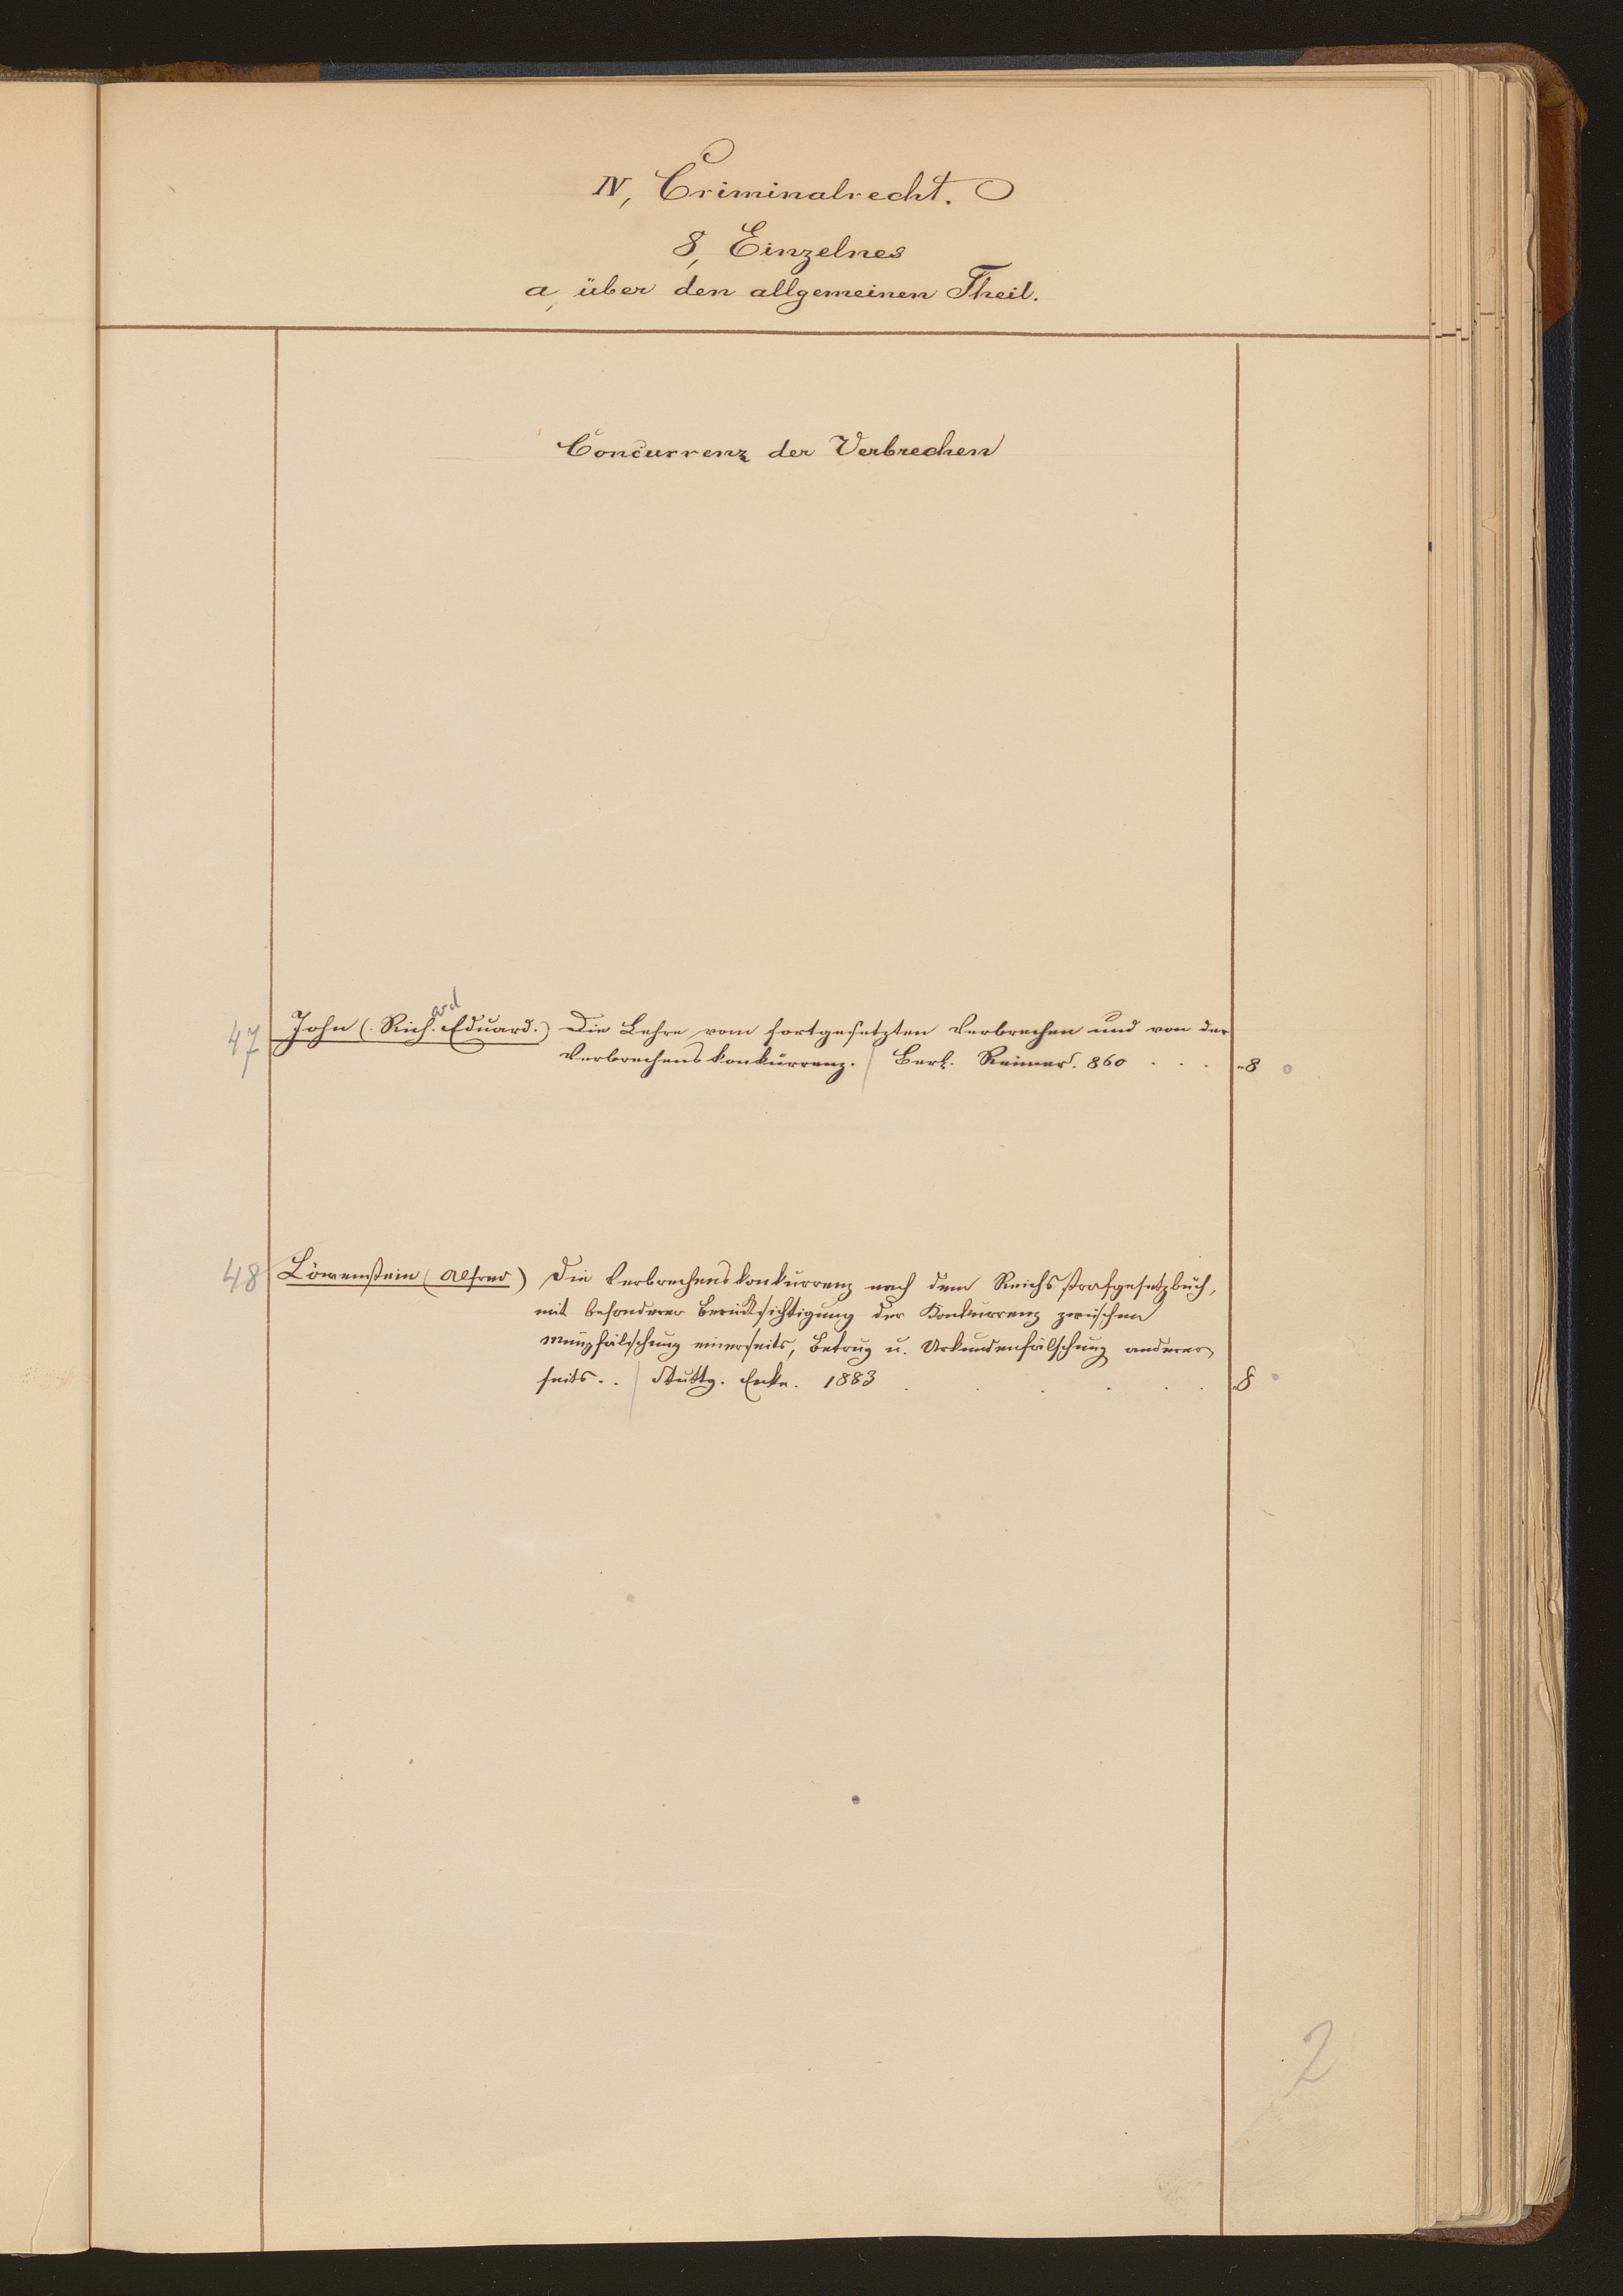 IV, Criminalrecht. O
8, Einzelnes
a, über den allgemeinen Theil.
Concurrenz der Verbrechen
47 John (Rich.ard Eduard.) Die Lehre vom fortgesetzten Verbrechen und von der
Verbrechenskonkurrenz. / Berl. Reimer. 860 . . . "8 o
48 Löwenstein (Alfred) Die Verbrechenskonkurrenz nach dem Reichsstrafgesetzbuch,
mit besonderer Berücksichtigung der Konkurrenz zwischen
Münzfälschung einerseits, Betrug u. Urkundenfälschung anderer
seits. . / Stuttg. Enke. 1883 . . . . . . 8
2